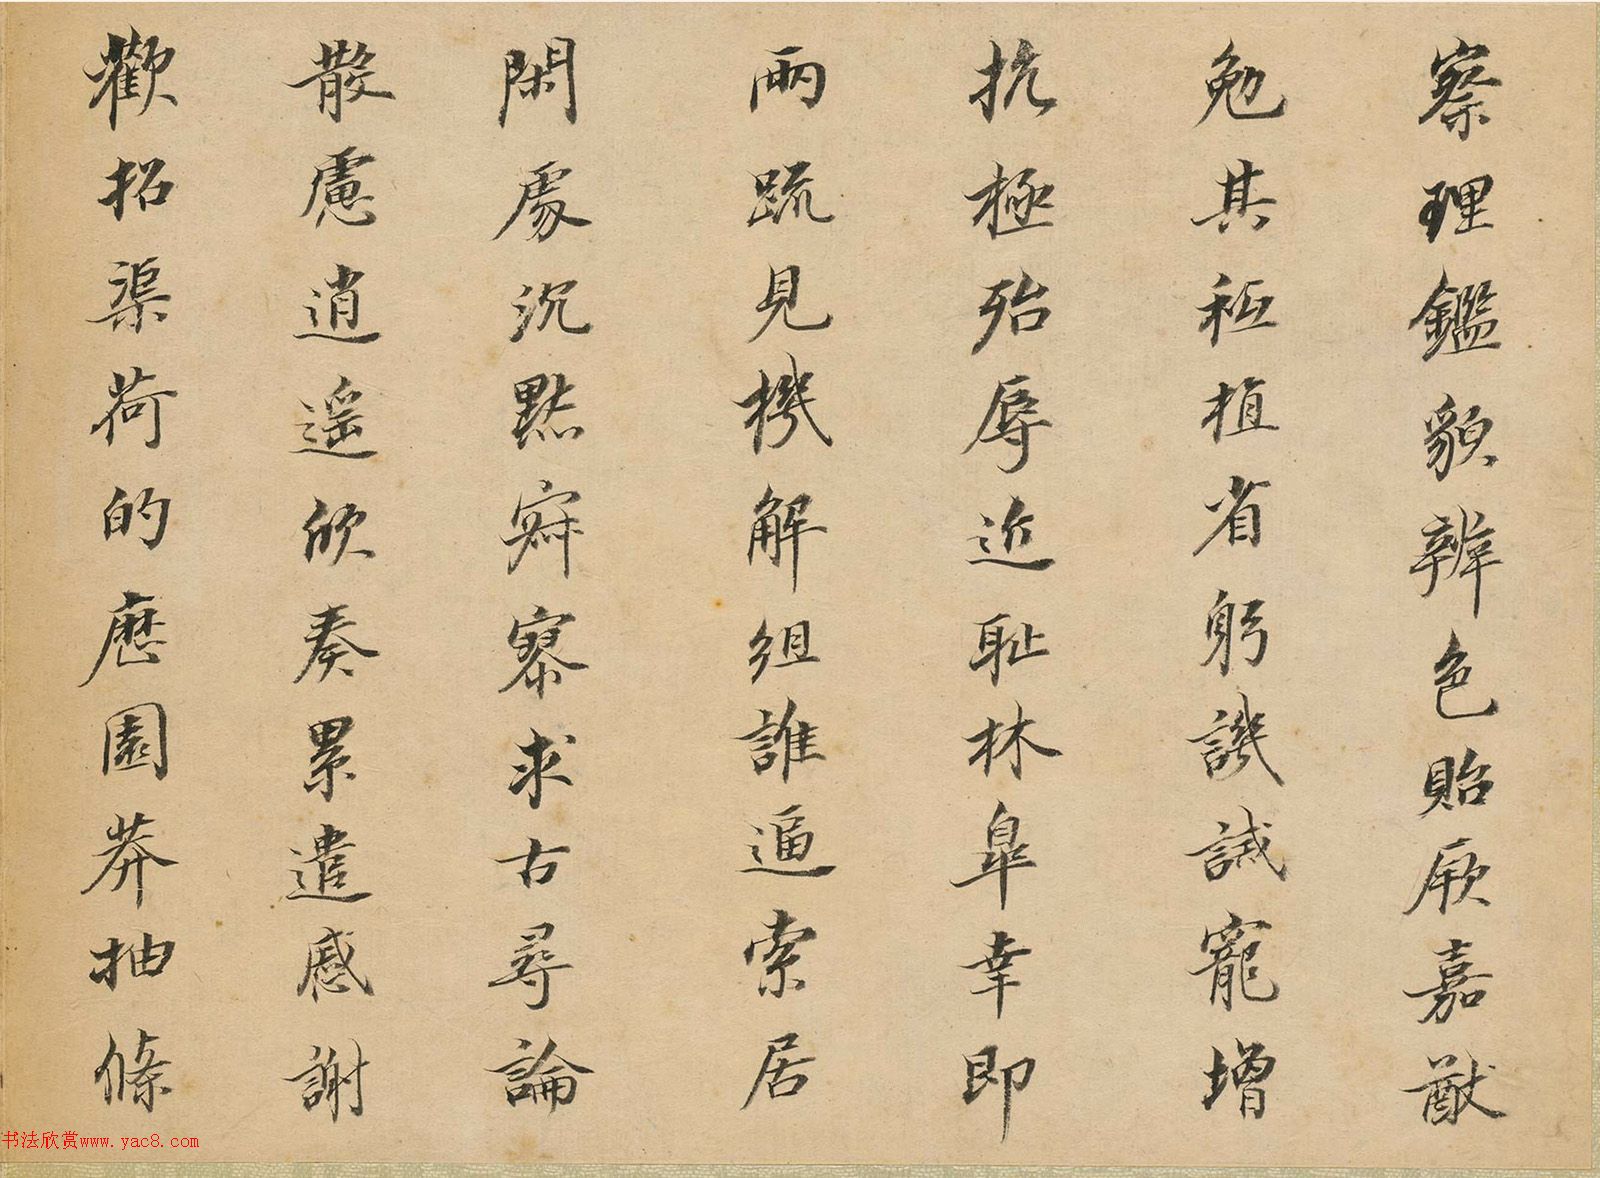 察理鑑貌辨色貽厥嘉猷
勉其祗植省躬譏誡寵增
抗極殆辱近恥林皋幸即
兩疏見機解組誰逼索居
閑處沉默寂寥求古尋論
散慮逍遙欣奏累遣慼謝
歡招渠荷的歷園莽抽條
书法欣赏www.yac8.com